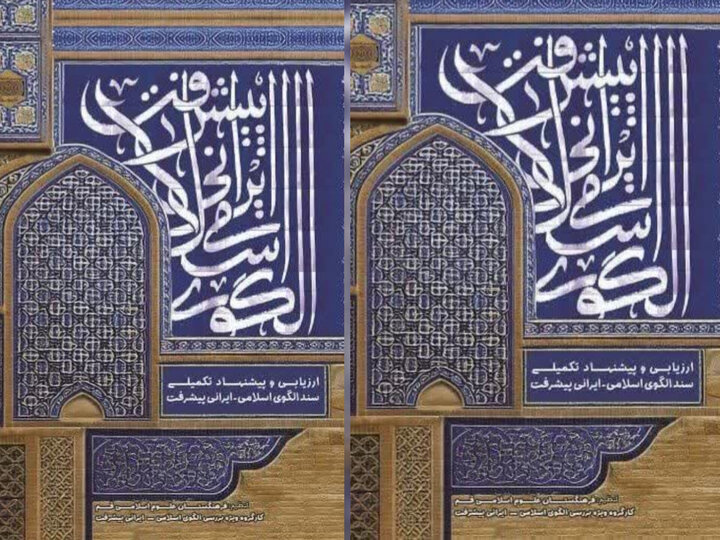 الگوی
اسلامی
ایرانی
پیشرفت
ارزیابی و پیشنهاد تکمیلی
سند الگوی اسلامی - ایرانی پیشرفت
تنظیم: فرهنگستان علوم اسلامی قم
کارگروه ویژه بررسی الگوی اسلامی – ایرانی پیشرفت
الگوی
اسلامی
ایرانی
پیشرفت
ارزیابی و پیشنهاد تکمیلی
سند الگوی اسلامی - ایرانی پیشرفت
تنظیم: فرهنگستان علوم اسلامی قم
کارگروه ویژه بررسی الگوی اسلامی – ایرانی پیشرفت